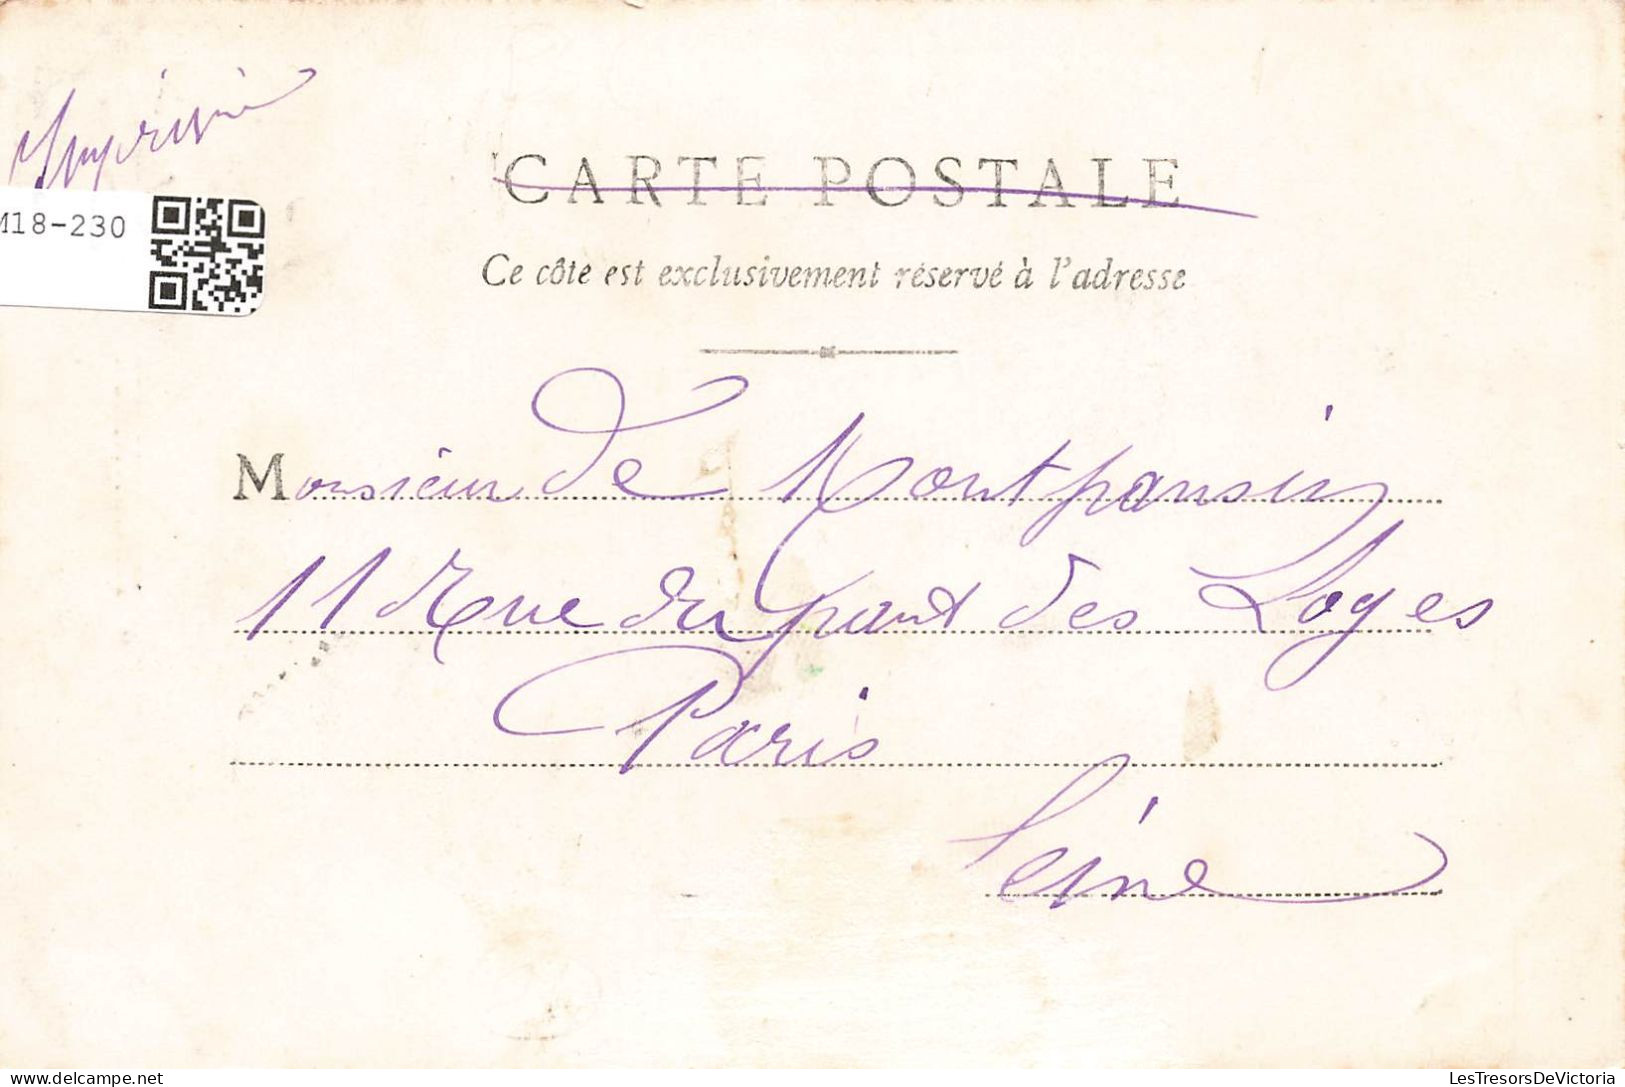 Imprimé
M18-230
CARTE POSTALE
Ce côté est exclusivement réservé à l'adresse
Monsieur de Montpansin
11 Rue du pont des Loges
Paris
Seine
LesTresorsDeVictoria